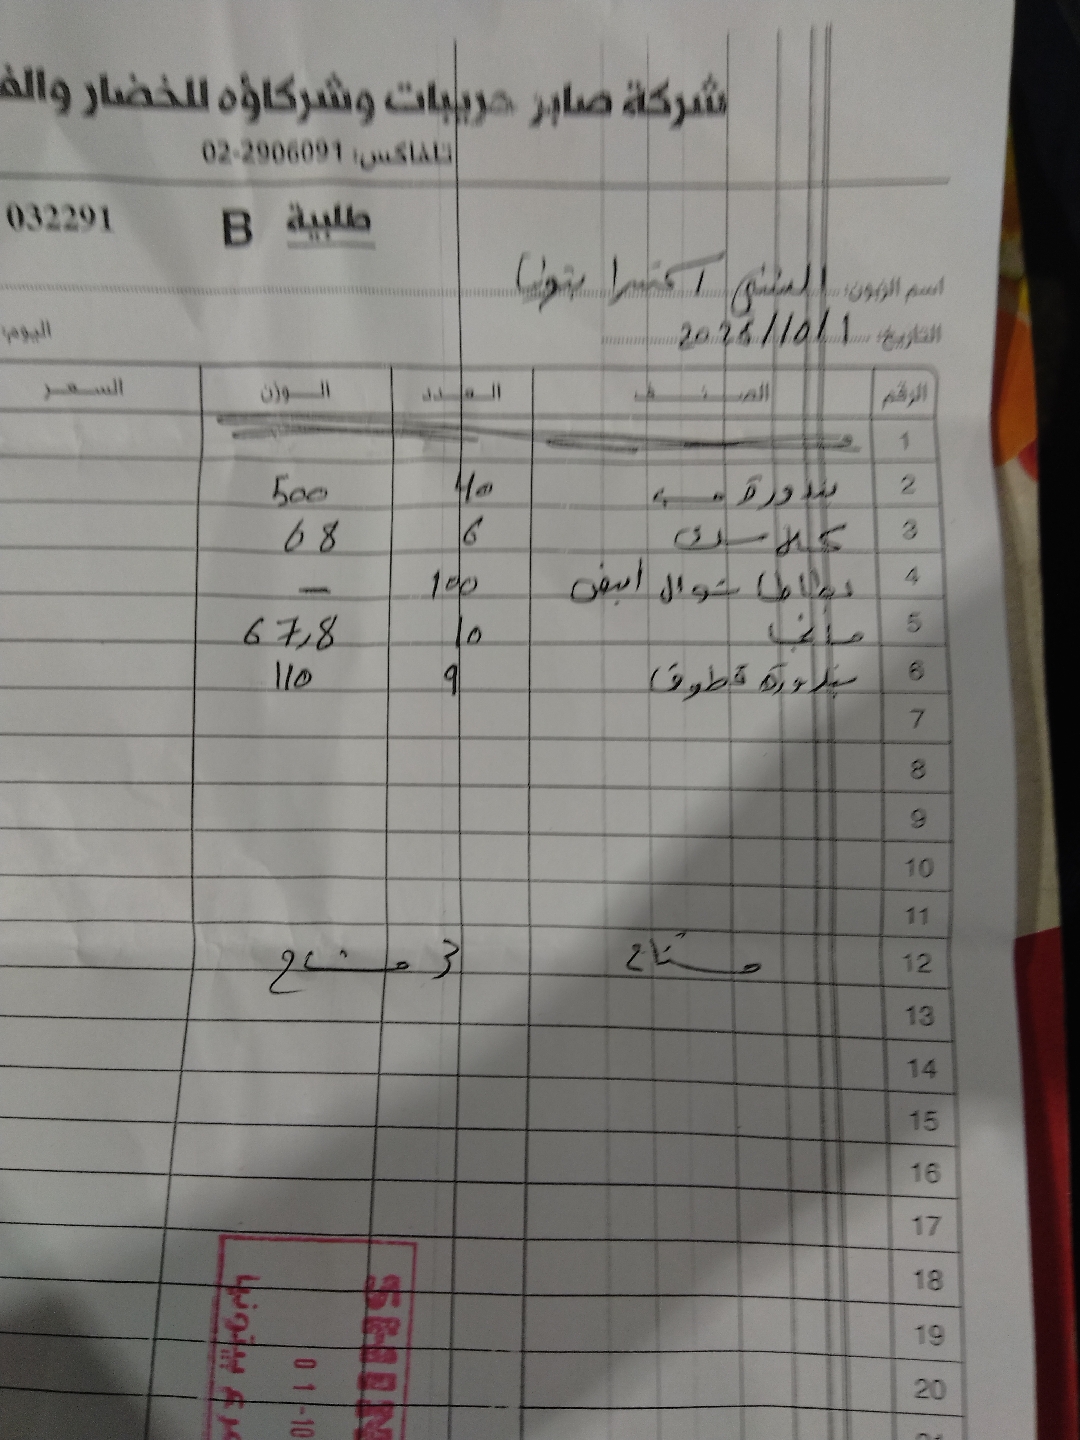 شركة صابر حريبات وشركاؤه للخضار والف
تلفاكس: 02-2906091
طلبية B 032291
اسم الزبون: اكسترا بيتونيا
التاريخ: 1/10/ اليوم:
الرقم الصنف العدد الوزن السعر
1
2 بندورة 40 500
3 6 68
4 شوال ابيض 100 —
5 مانجا 10 67,8
6 بندورة قطوف 9 110
7
8
9
10
11
12 مشتاح 3 مشتاح
13
14
15
16
17
18
19
20
21
01-10
بيتونيا